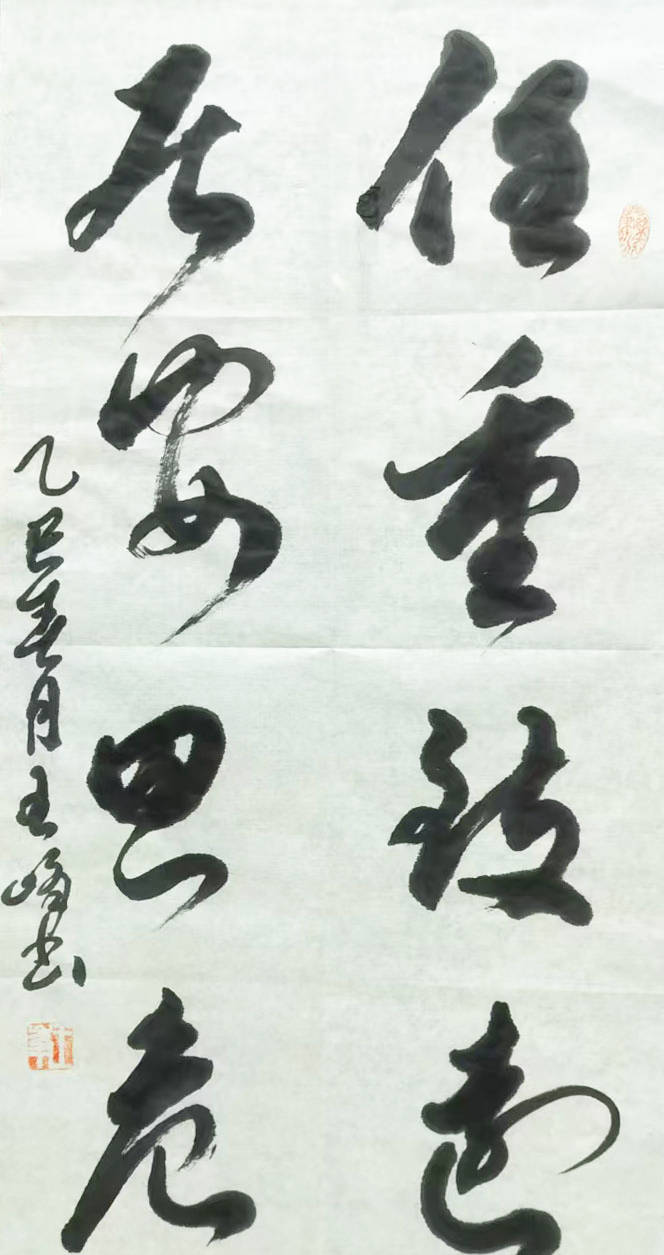 任重致远
居安思危
乙巳春月王峰书